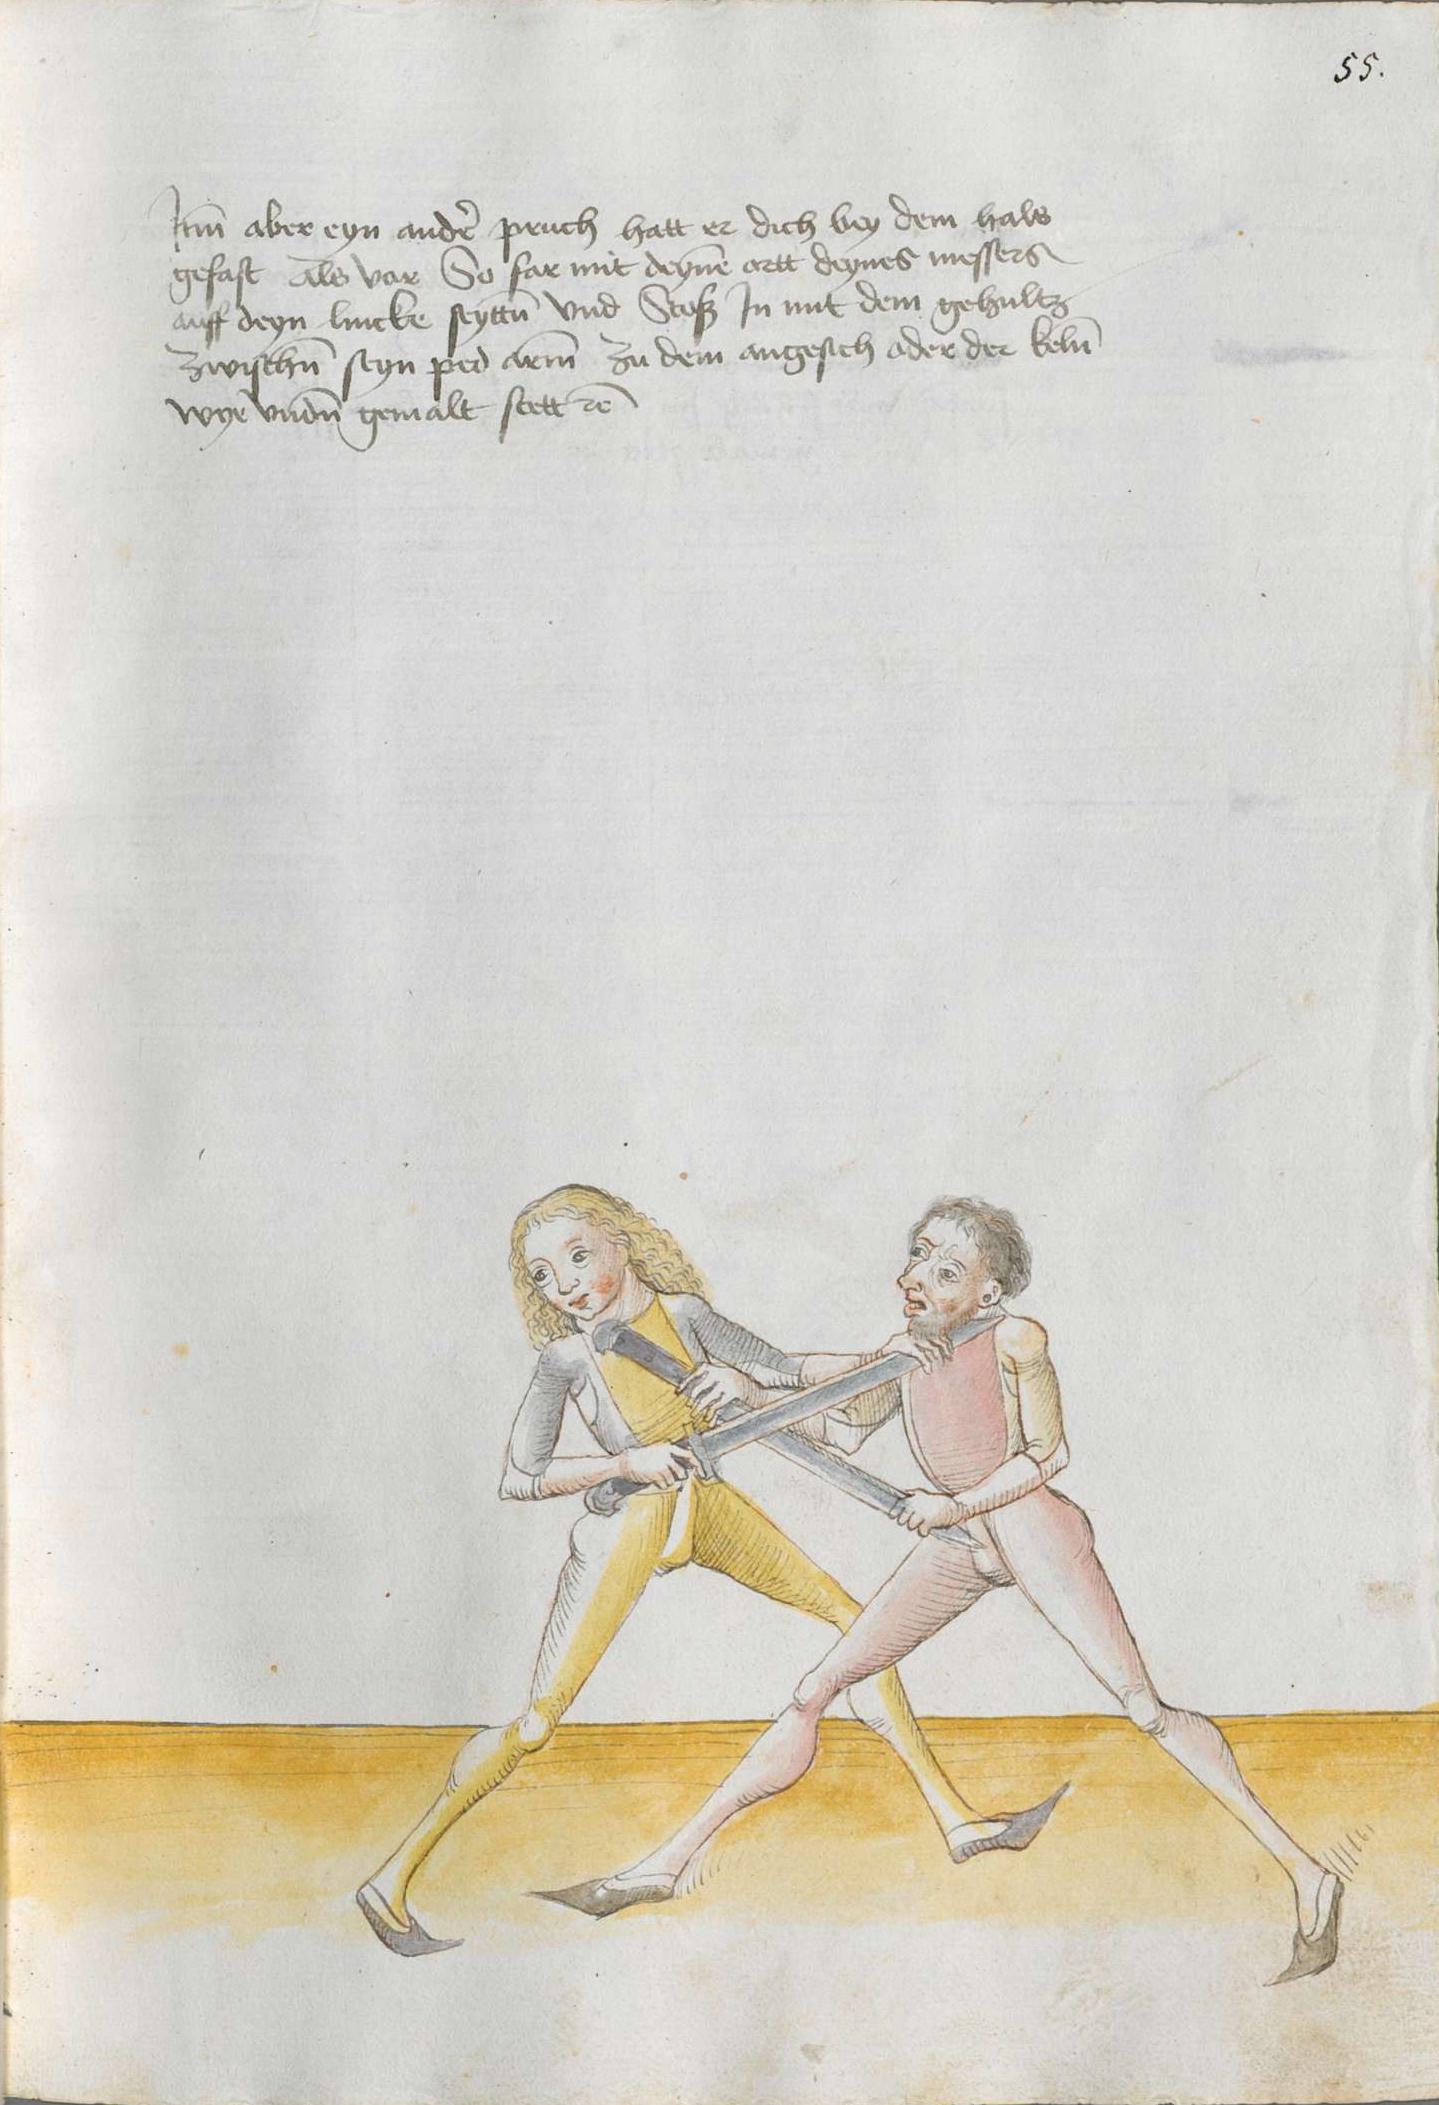 55.
Itm̄ aber eyn andr̄ pruch hatt er dich bey dem hals
gefast als vor So far mit deynē ortt deynes messers
auff deyn lincke seyttn̄ vnd Stoß In mit dem gehultz
zwischn̄ seyn ped arm̄ zu dem angesich oder der keln̄
wye vndn̄ gemalt stett ꝛc̄